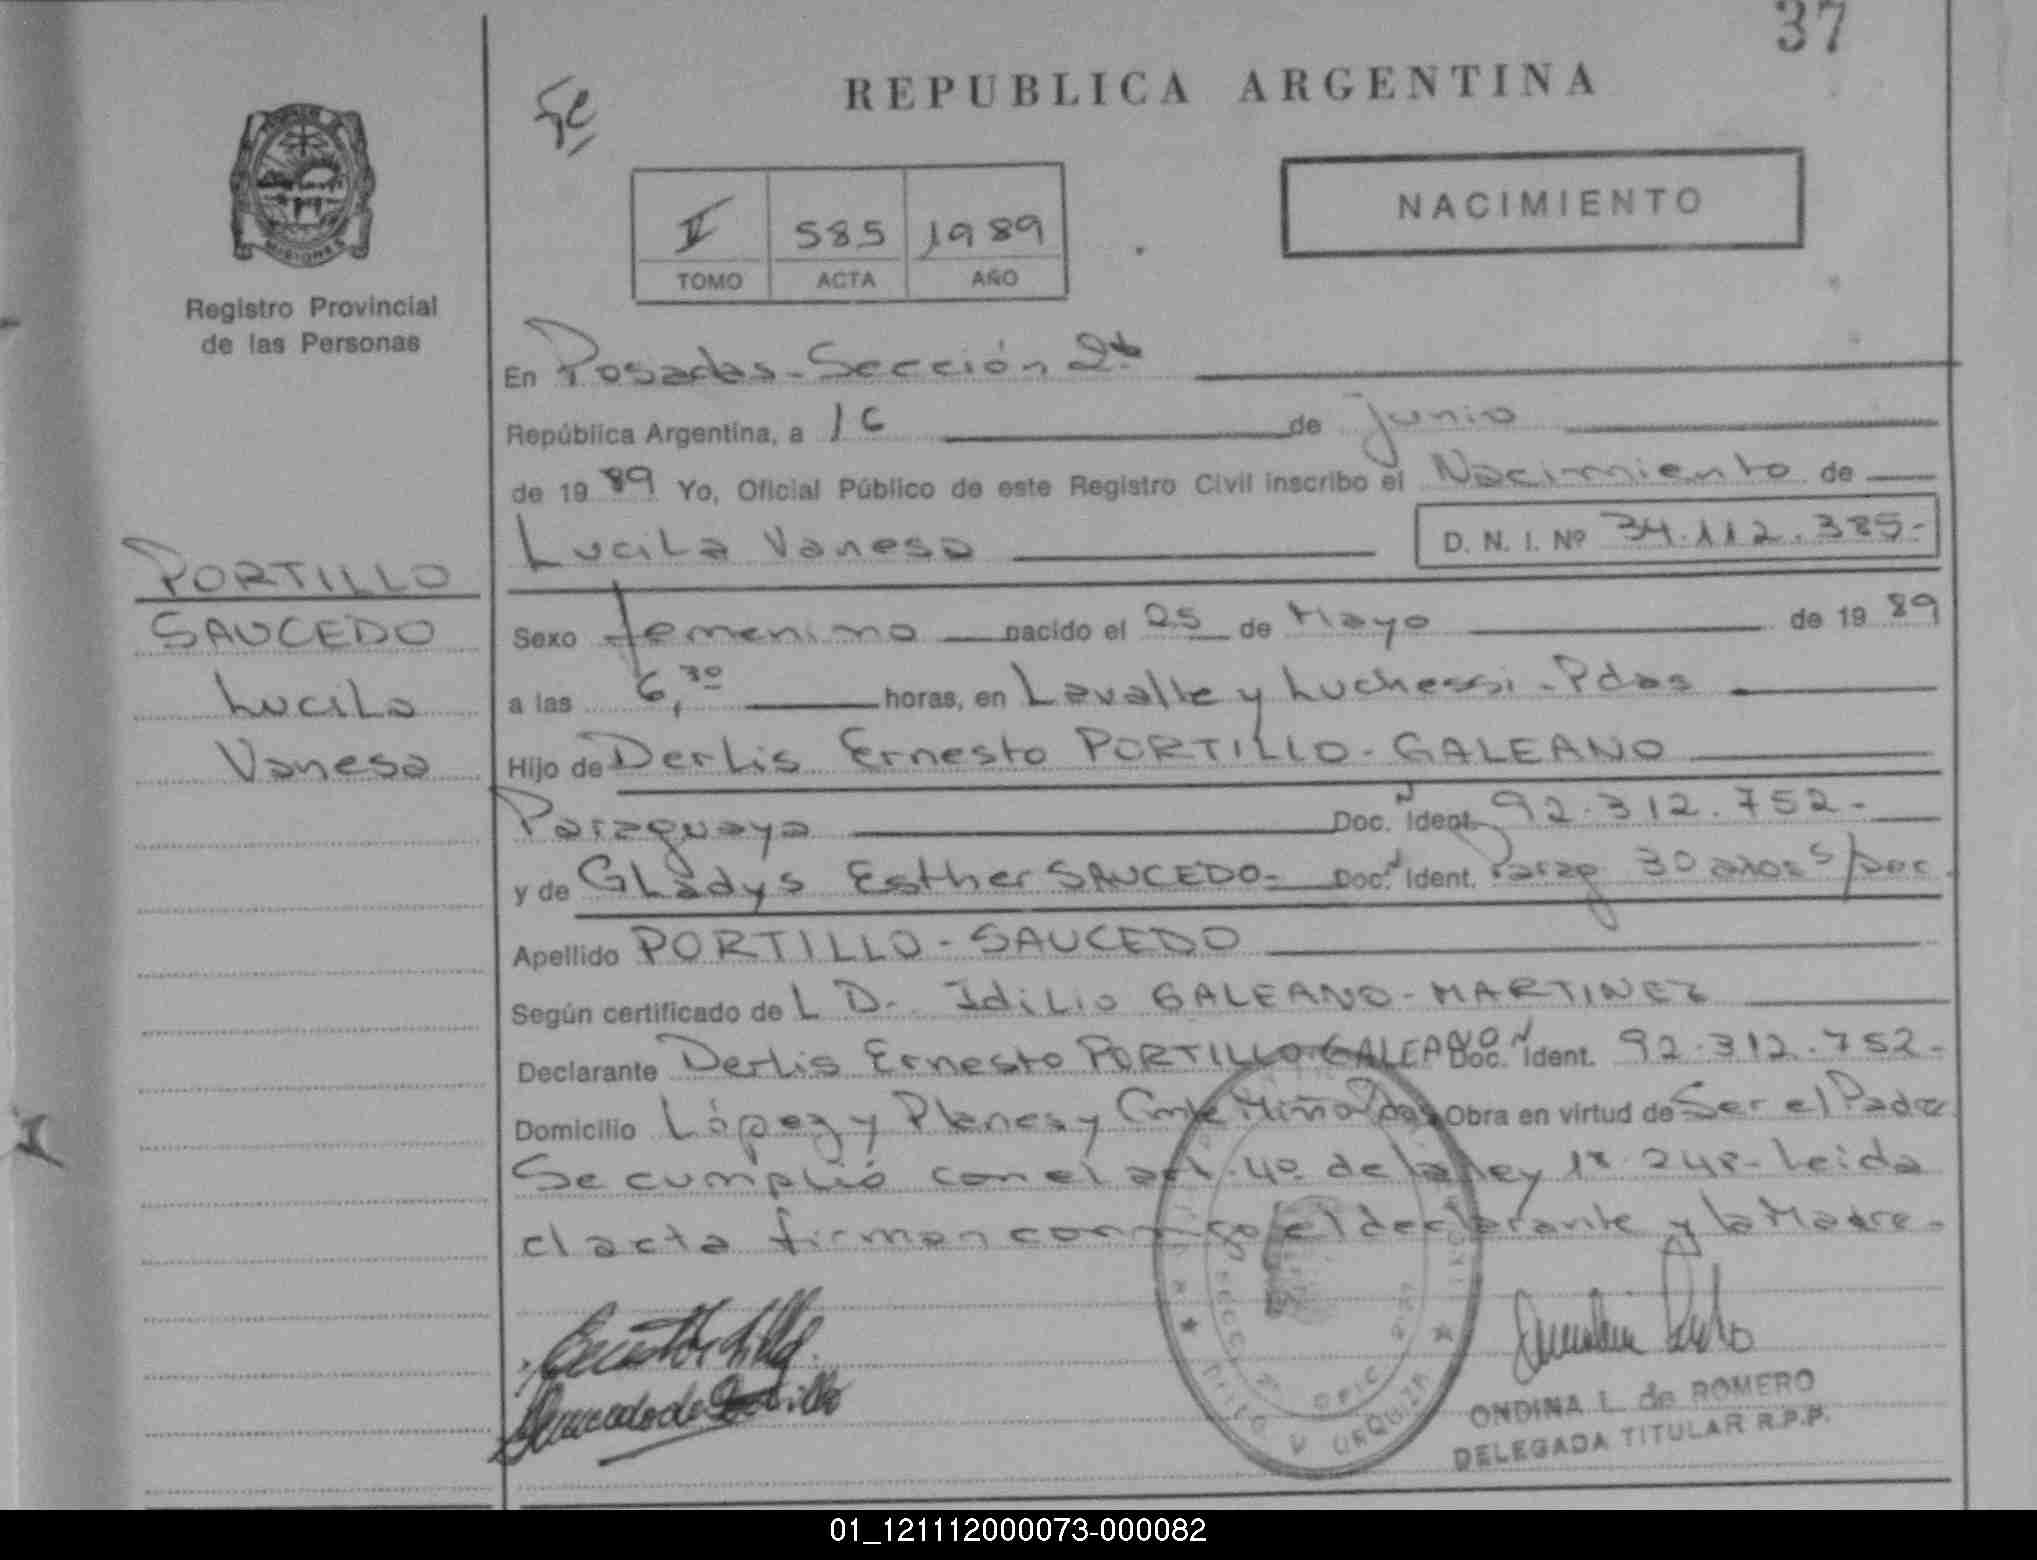 37
REPUBLICA ARGENTINA
NACIMIENTO
II 585 1989
TOMO ACTA AÑO
MISIONES
Registro Provincial
de las Personas
En Posadas - Sección 2ª
República Argentina, a 16 de junio
de 1989 Yo, Oficial Público de este Registro Civil inscribo el Nacimiento de
Lucila Vanesa D. N. I. Nº 34.112.385.-
PORTILLO
SAUCEDO
Lucila
Vanesa
Sexo femenino nacido el 25 de Mayo de 1989
a las 6,30 horas, en Lavalle y Luchessi - Pdas
Hijo de Derlis Ernesto PORTILLO - GALEANO
Paraguaya Doc. Ident. 92.312.752.-
y de Gladys Esther SAUCEDO- Doc. Ident. Parag 30 años s/doc.
Apellido PORTILLO - SAUCEDO
Según certificado de L D. Idilio GALEANO - MARTINEZ
Declarante Derlis Ernesto PORTILLO GALEANO Doc. Ident. 92.312.752.-
Domicilio López y Planes y Cnte Miño Pdas Obra en virtud de Ser el Padre
Se cumplió con el art. 4º de la ley 18.248 - Leida
el acta firman conmigo el declarante y la Madre.
ONDINA L. de ROMERO
DELEGADA TITULAR R.P.P.
01_121112000073-000082